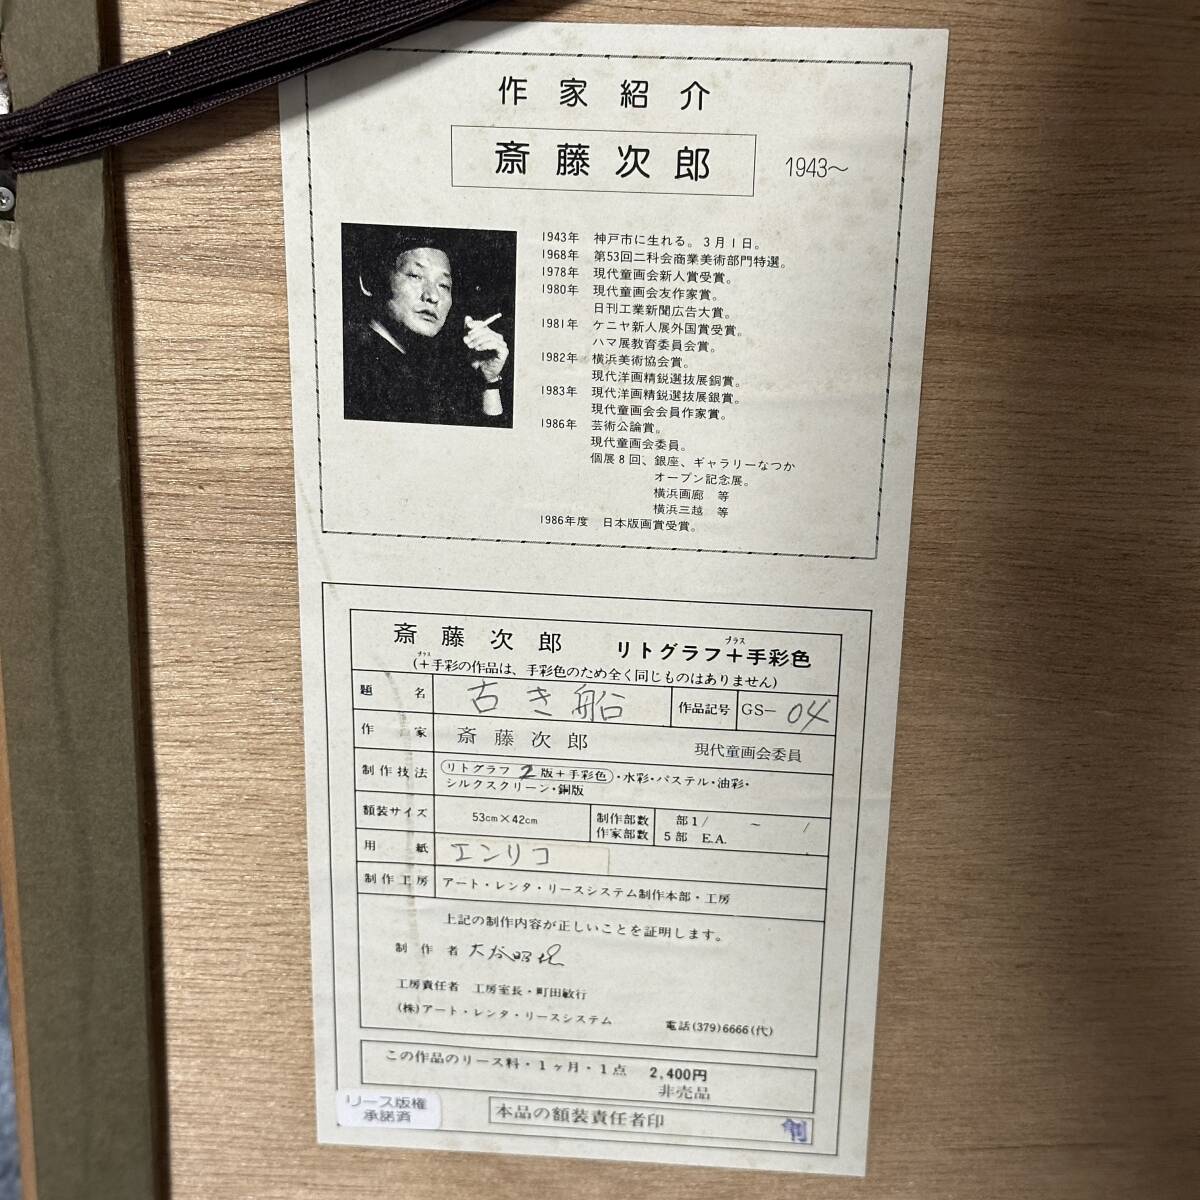 作家紹介
斎藤次郎 1943〜
1943年 神戸市に生れる。3月1日。
1968年 第53回二科会商業美術部門特選。
1978年 現代童画会新人賞受賞。
1980年 現代童画会友作家賞。
日刊工業新聞広告大賞。
1981年 ケニヤ新人展外国賞受賞。
ハマ展教育委員会賞。
1982年 横浜美術協会賞。
現代洋画精鋭選抜展銅賞。
1983年 現代洋画精鋭選抜展銀賞。
現代童画会会員作家賞。
1986年 芸術公論賞。
現代童画会委員。
個展8回、銀座、ギャラリーなつか
オープン記念展。
横浜画廊 等
横浜三越 等
1986年度 日本版画賞受賞。
斎藤次郎 リトグラフ+手彩色
プラス
プラス
(+手彩の作品は、手彩色のため全く同じものはありません)
題名 古き船 作品記号 GS-04
作家 斎藤次郎 現代童画会委員
制作技法 リトグラフ 2版+手彩色・水彩・パステル・油彩・
シルクスクリーン・銅版
額装サイズ 53cm×42cm 制作部数 部1/ 〜 /
作家部数 5部 E.A.
用紙 エンリコ
制作工房 アート・レンタ・リースシステム制作本部・工房
上記の制作内容が正しいことを証明します。
制作者
工房責任者 工房室長・町田敏行
(株)アート・レンタ・リースシステム 電話(379)6666(代)
この作品のリース料・1ヶ月・1点 2,400円
非売品
リース版権
承諾済
本品の額装責任者印